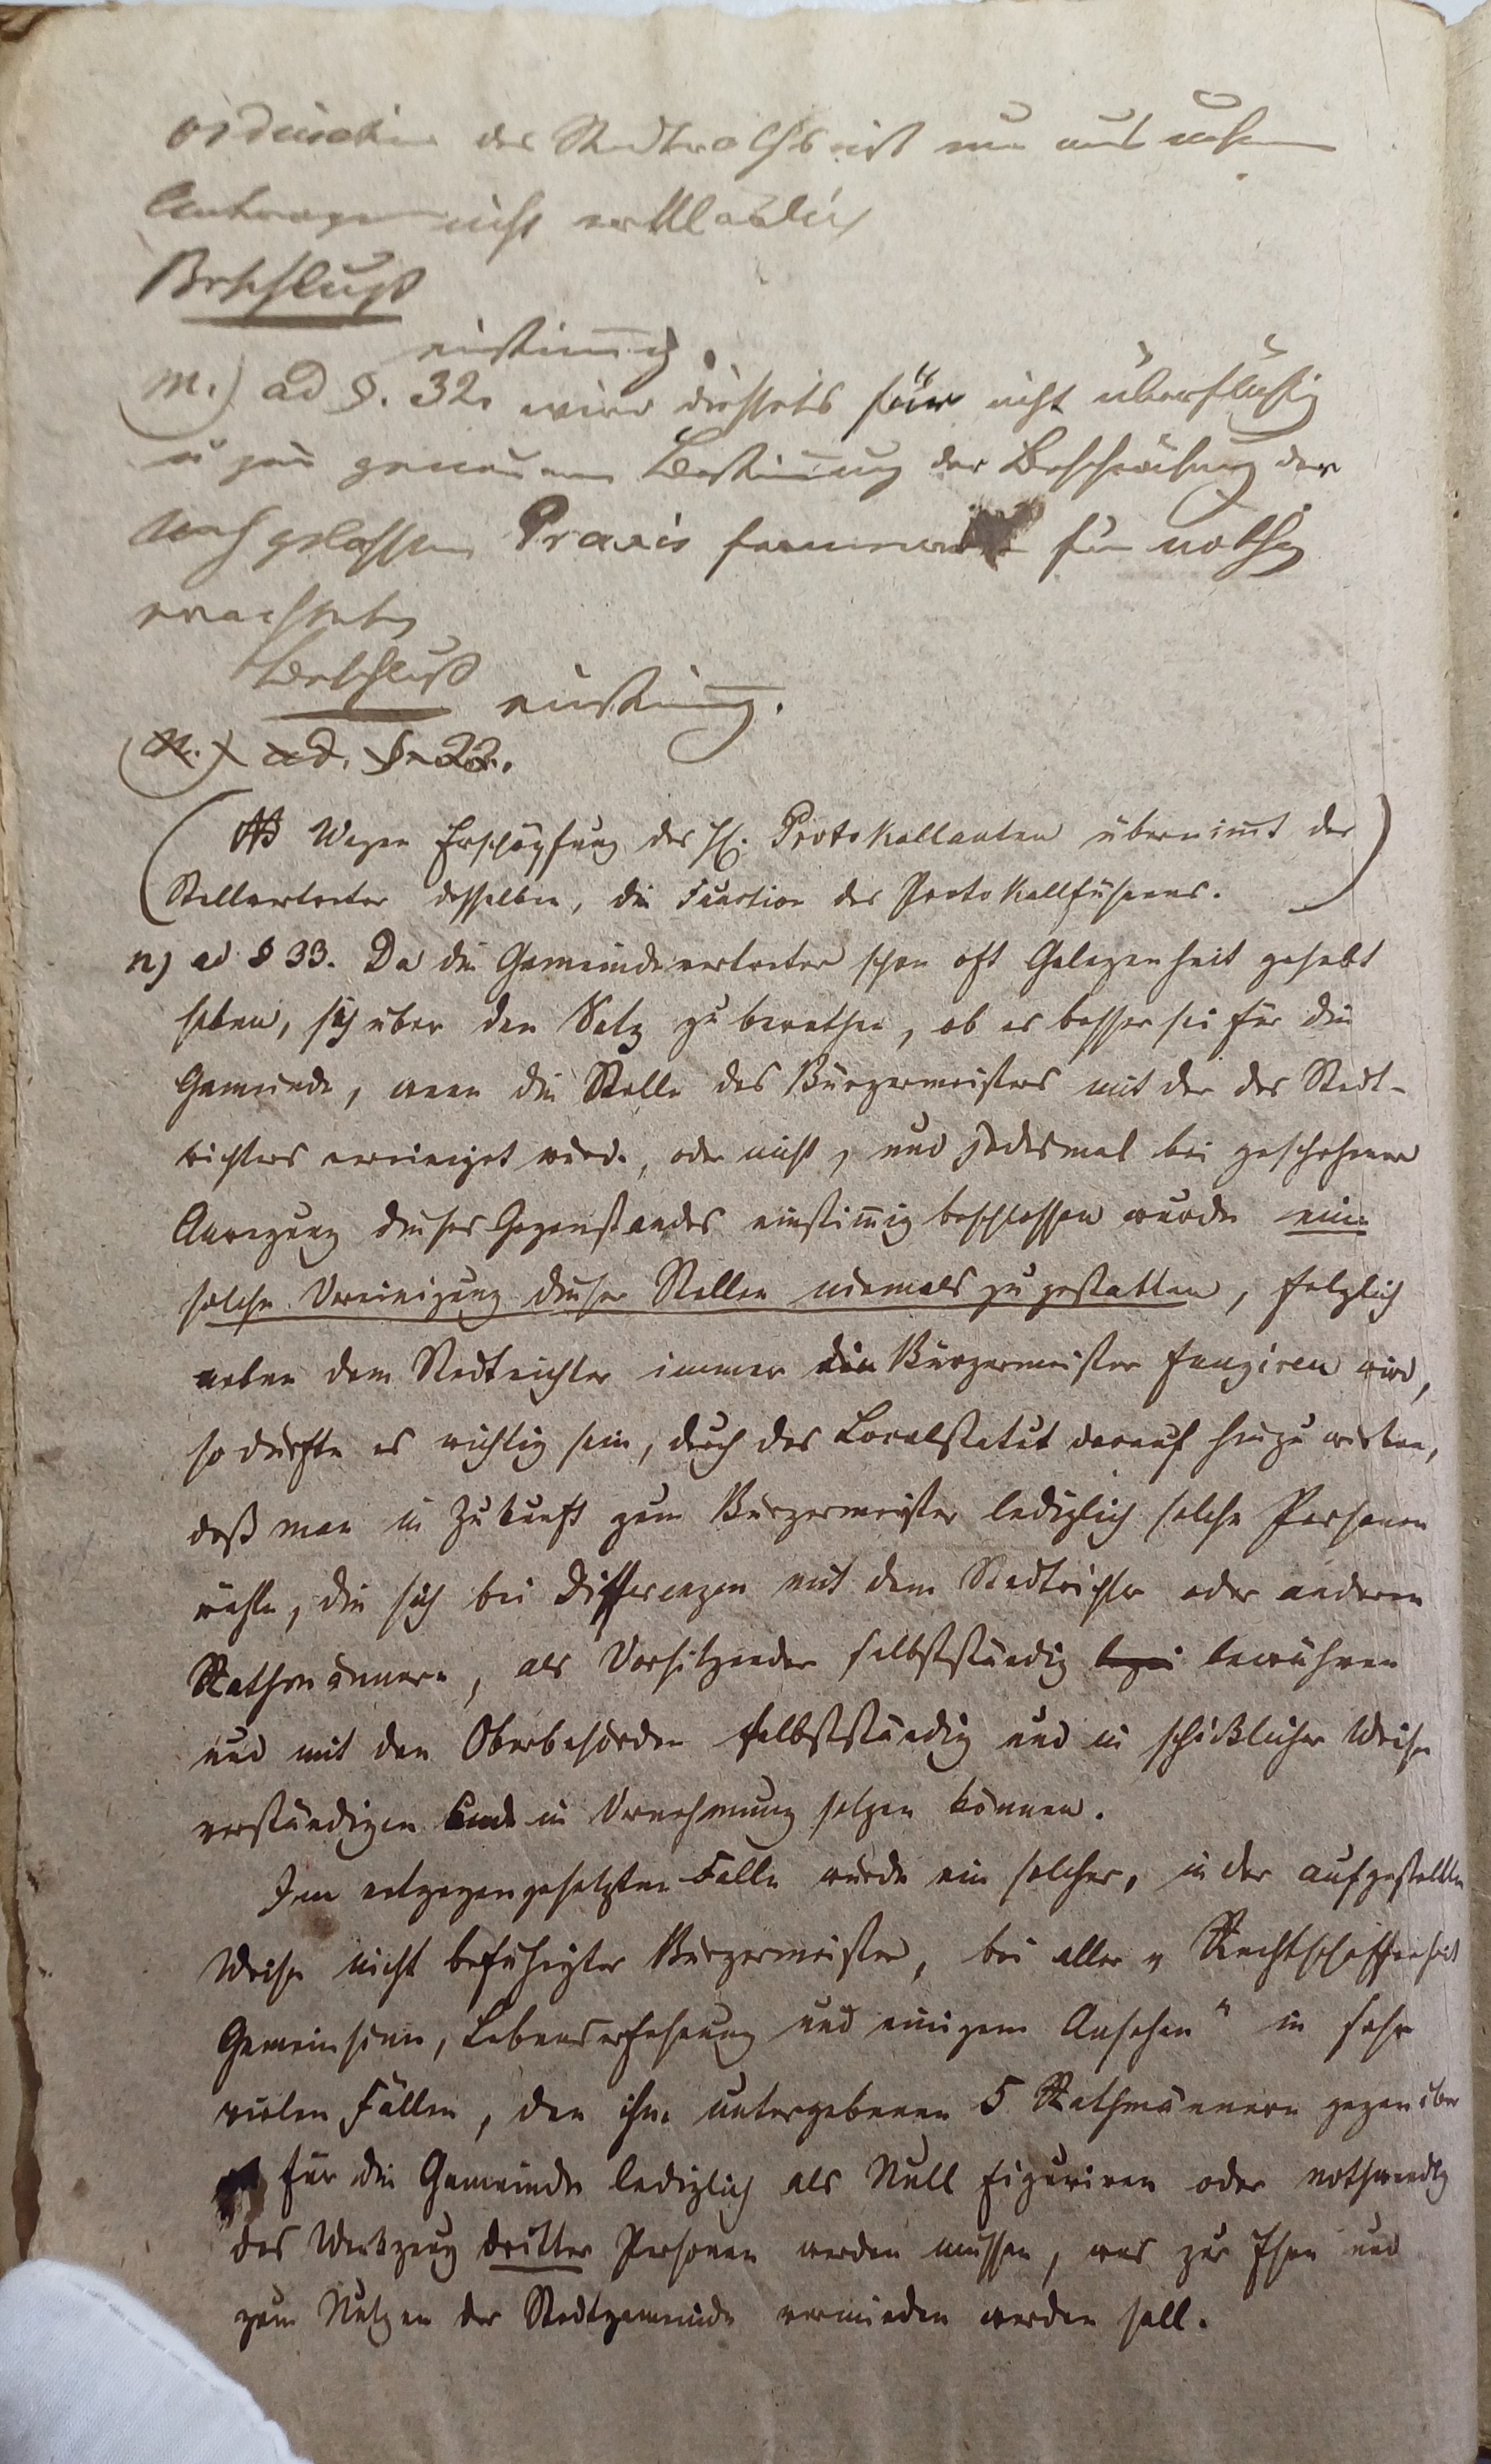 des Stadtraths ist nur auf
Antrage nicht
Beschluß
einstimmig.
m.) ad §. 32. wird diesseits für nicht überflüßig
u zur genauern Bestimung der Beschränkung der
nachgelassenen Praxis für nöthig
erachtet,
Beschluß einstimig.
n.) ad. §. 22.
(NB Wegen Erschöpfung des H. Protokollanten übernimt der
Stellvertreter desselben, die Function des Protokollführens.)
n) ad § 33. Da die Gemeindevertreter schon oft Gelegenheit gehabt
haben, sich über den Satz zu berathen, ob es besser sei für die
Gemeinde, wenn die Stelle des Bürgermeisters mit der des Stadt-
richters vereiniget würde, oder nicht, und jedesmal bei geschehener
Anregung dieses Gegenstandes einstimig beschlossen wurde eine
solche Vereinigung dieser Stellen niemals zu gestatten, folglich
neben dem Stadtrichter immer ein Bürgermeister fungiren wird,
so dürfte es wichtig sein, durch das Localstatut darauf hinzu wirken,
daß man in Zukunft zum Bürgermeister lediglich solche Personen
wähle, die sich bei Differenzen mit dem Stadtrichter oder anderen
Rathmännern, als Vorsitzender selbstständig bewähren
und mit den Oberbehörden selbstständig und in schicklicher Weise
verständigen und in Vernehmung setzen können.
Im entgegengesetzten Falle würde ein solcher, in der aufgestellten
Weise nicht befähigter Bürgermeister, bei aller „Rechtschaffenheit
Gemeinsinn, Lebenserfahrung und einigem Ansehen" in sehr
vielen Fällen, den ihm untergebenen 5 Rathmännern gegenüber
für die Gemeinde lediglich als Null figuriren oder nothwendig
das Werkzeug dritter Personen werden müssen, was zur Ehre und
zum Nutzen der Stadtgemeinde vermieden werden soll.